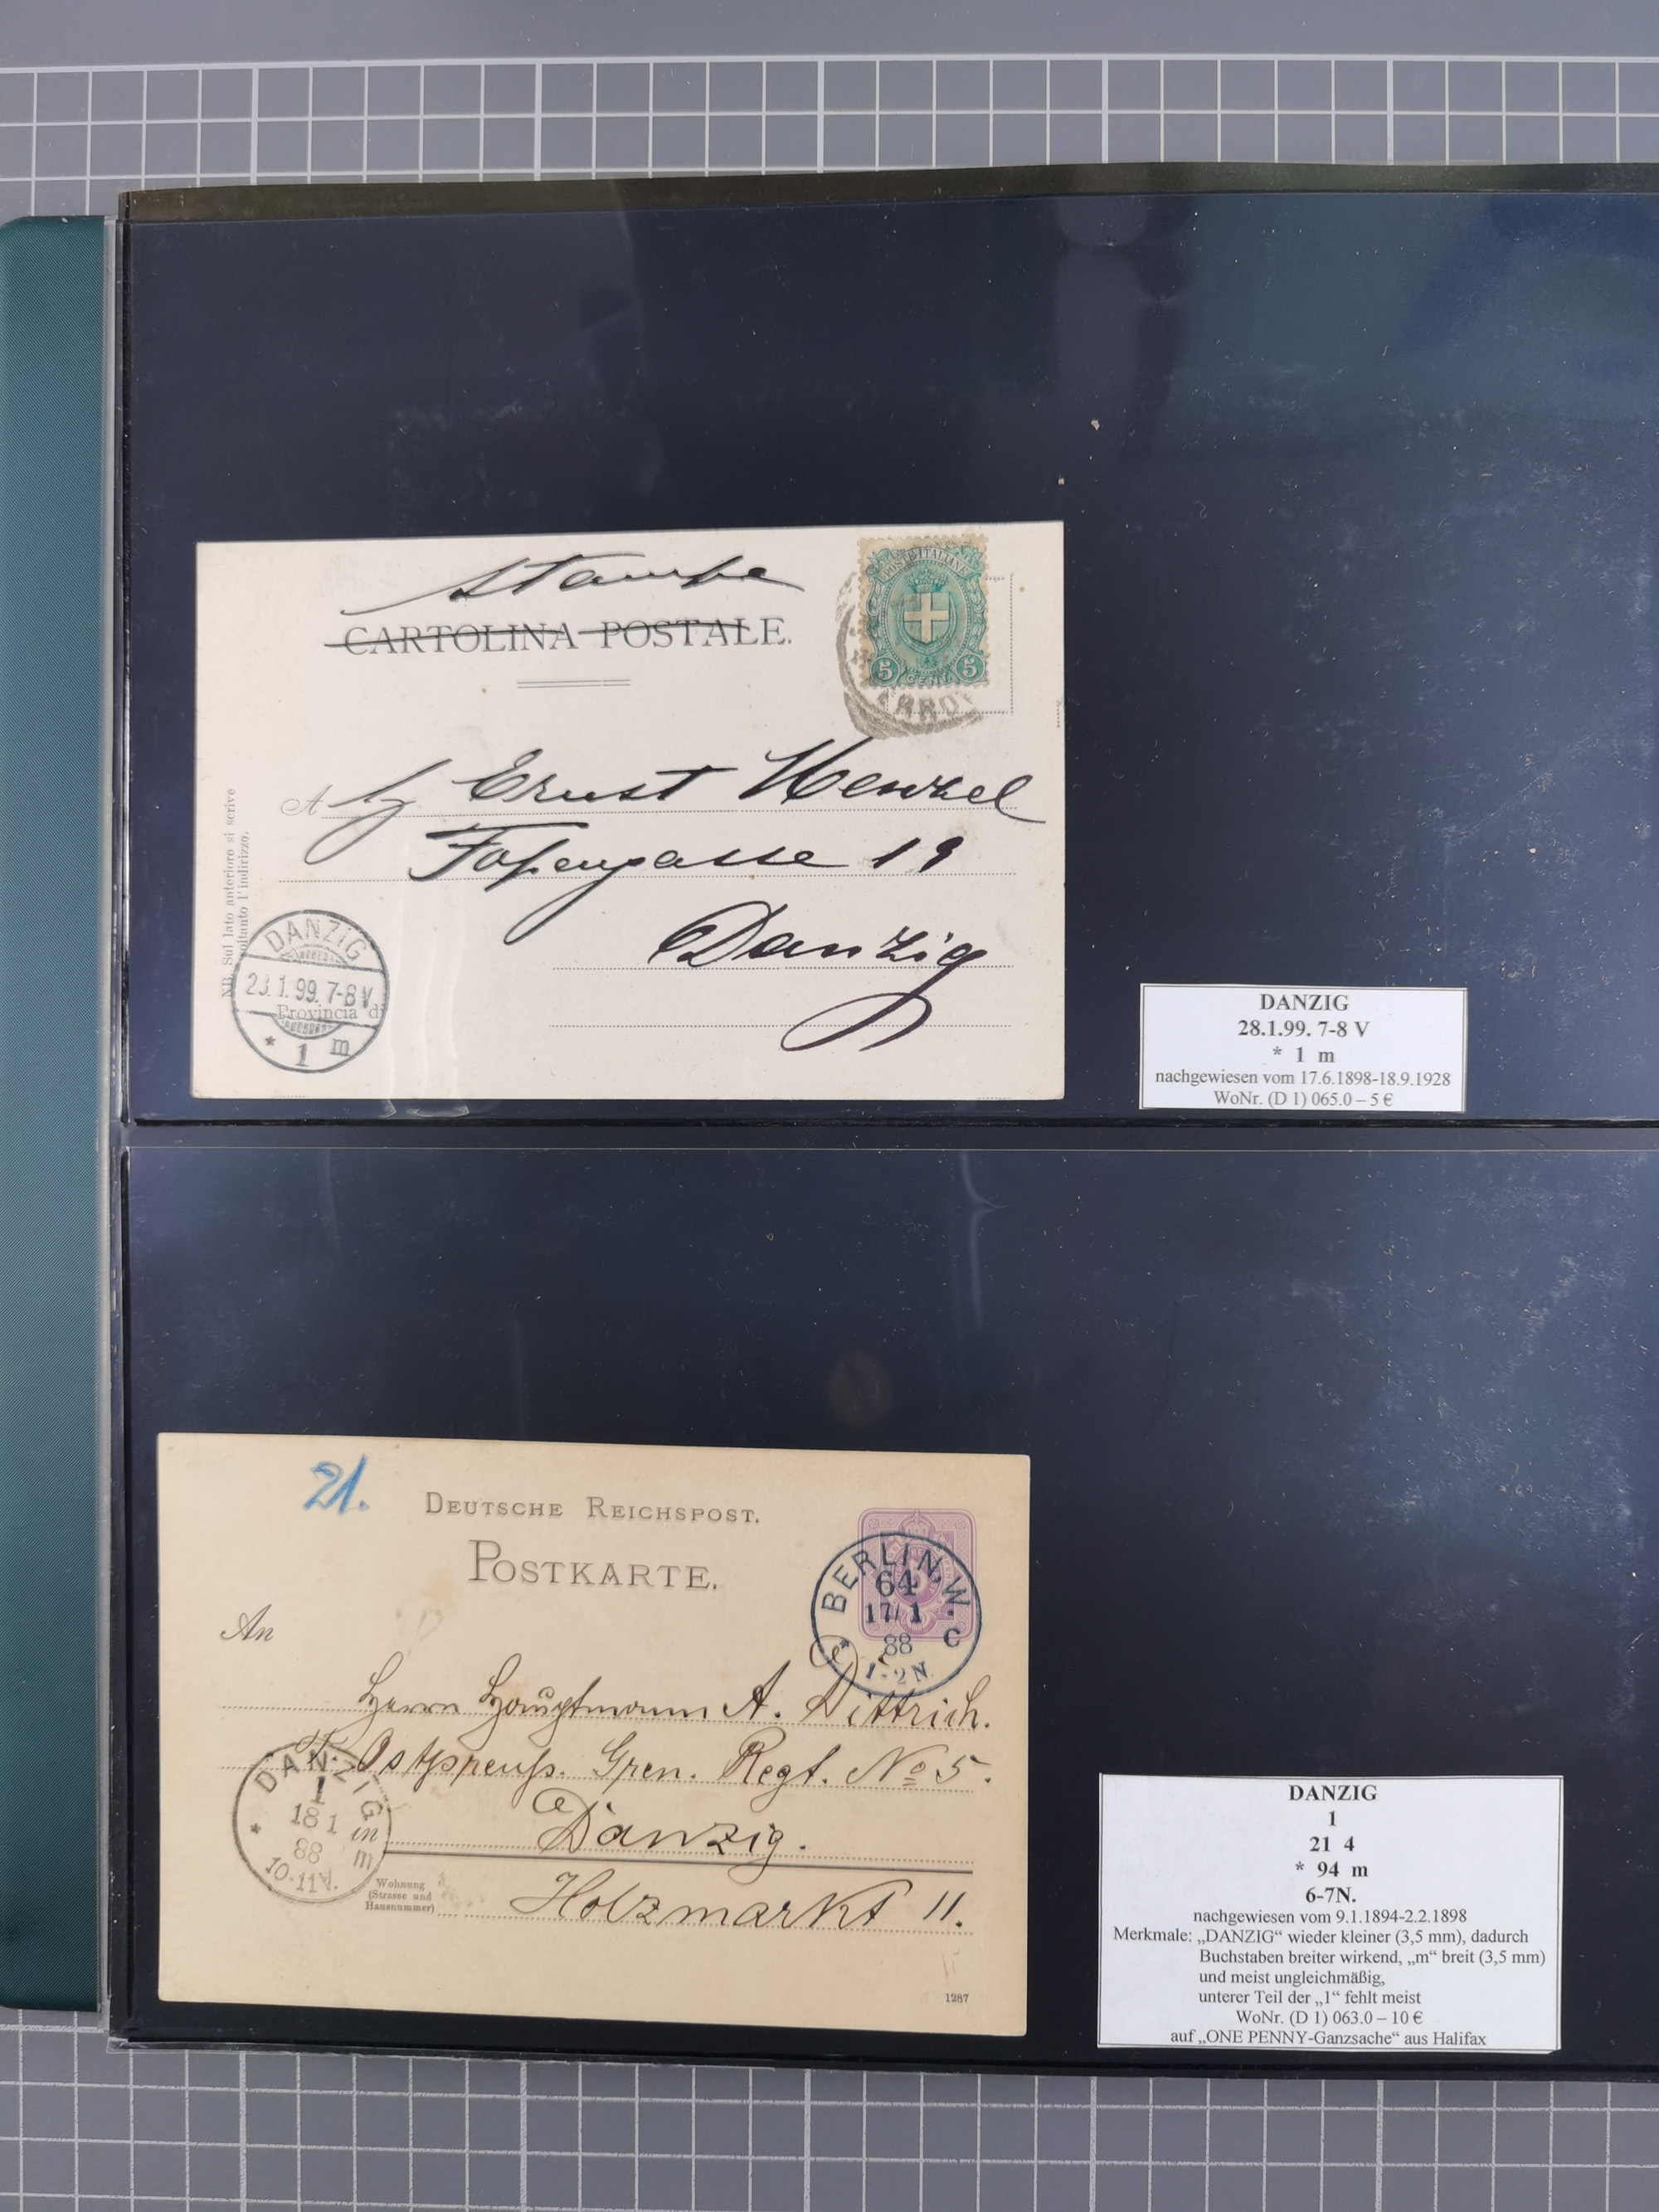 Stampe
CARTOLINA POSTALE.
POSTE ITALIANE
5 CENT. 5
A Hr Ernst Henkel
Jopengasse 19
Danzig
NB. Sul lato anteriore si scrive
soltanto l'indirizzo.
DANZIG
23.1.99. 7-8V.
Provincia di
* 1 m
DANZIG
28.1.99. 7-8 V
* 1 m
nachgewiesen vom 17.6.1898-18.9.1928
WoNr. (D 1) 065.0 – 5 €
21.
DEUTSCHE REICHSPOST.
POSTKARTE.
BERLIN, W.
64
17/1
88
* C
1-2N.
An
Herrn Hauptmann A. Dittrich.
Ostpreuß. Gren. Regt. No 5.
in Danzig.
DANZIG
1
18 1
88
* m
10-11V.
Wohnung
(Strasse und
Hausnummer)
Holzmarkt 11.
1287
DANZIG
1
21 4
* 94 m
6-7N.
nachgewiesen vom 9.1.1894-2.2.1898
Merkmale: „DANZIG“ wieder kleiner (3,5 mm), dadurch
Buchstaben breiter wirkend, „m“ breit (3,5 mm)
und meist ungleichmäßig,
unterer Teil der „1“ fehlt meist
WoNr. (D 1) 063.0 – 10 €
auf „ONE PENNY-Ganzsache“ aus Halifax